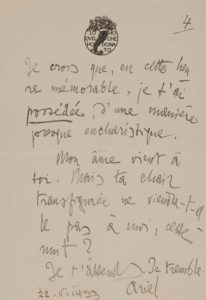 IO HO
QUEL CHE
HO DONATO
4
Je crois que, en cette heu
re mémorable, je t'ai
possédée, d'une manière
presque eucharistique.
Mon âme vient à
toi. Mais ta chair
transfigurée ne viendra-t-el
le pas à moi, cette
nuit ?
Je t'attends. Je tremble.
Ariel